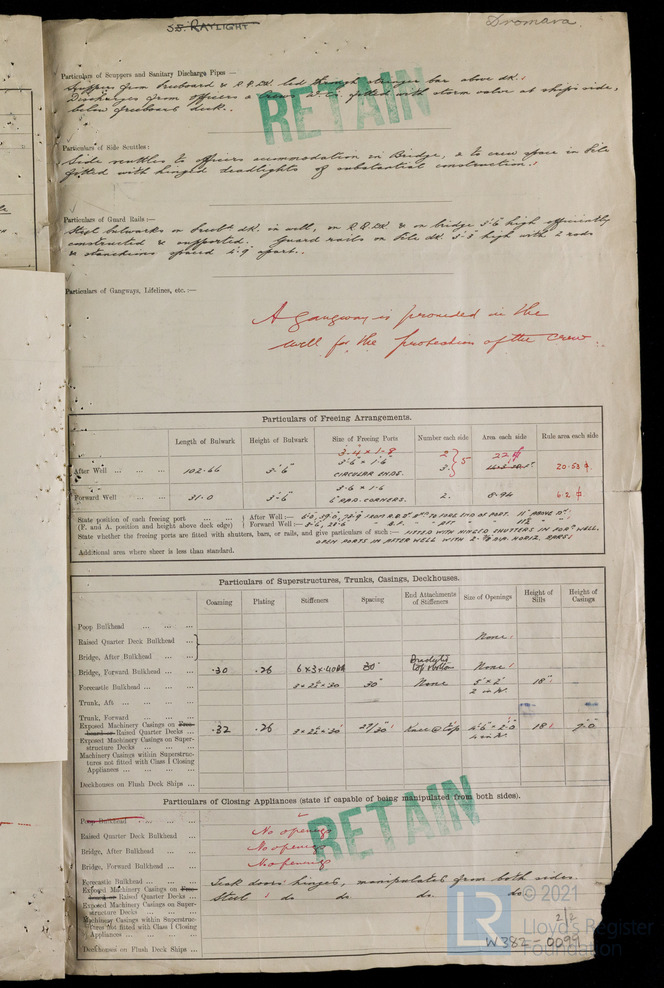 S.S. RAYLIGHT
Dromara.
Particulars of Scuppers and Sanitary Discharge Pipes :—
Scuppers from freeboard & R.Q.DK. led through stringer bar above dk.
Discharges from officers & crews W.Cs. fitted with storm valve at ships side,
below freeboard deck.
RETAIN
Particulars of Side Scuttles:
Side scuttles to officers accommodation in Bridge, & to crew space in F'cle
fitted with hinged deadlights of substantial construction.
Particulars of Guard Rails :—
Steel bulwarks on freeb'd dk. in well, on R.Q.DK. & on bridge 3'6 high efficiently
constructed & supported. Guard rails on F'cle dk. high with 2 rods
& stanchions spaced apart.
Particulars of Gangways, Lifelines, etc. :—
A gangway is provided in the
well for the protection of the crew.
Particulars of Freeing Arrangements.
Length of Bulwark Height of Bulwark Size of Freeing Ports Number each side Area each side Rule area each side
3.4 × 1.8 2 22
After Well ... ... ... 102.66 3'.6" 3'6 × 1'6 3 5 20.53
CIRCULAR ENDS.
3.6 × 1.6
Forward Well ... ... 31.0 3'.6 6" RAD. CORNERS. 2. 8.94 6.2
State position of each freeing port ... ... ...
(F. and A. position and height above deck edge)
After Well :—
Forward Well :—
State whether the freeing ports are fitted with shutters, bars, or rails, and give particulars of such :— FITTED WITH HINGED SHUTTERS IN FOR'D WELL.
OPEN PORTS IN AFTER WELL WITH 2- DIA. HORIZ. BARS.
Additional area where sheer is less than standard.
Particulars of Superstructures, Trunks, Casings, Deckhouses.
Coaming Plating Stiffeners Spacing End Attachments of Stiffeners Size of Openings Height of Sills Height of Casings
Poop Bulkhead ... ... ...
Raised Quarter Deck Bulkhead ...
None.
Bridge, After Bulkhead ... ...
Bridge, Forward Bulkhead ... ... .30 .26 6 × 3 × .40 BA 30" Bracketed top & bottom None.
Forecastle Bulkhead ... ... ... 30" None 18".
Trunk, Aft ... ... ...
Trunk, Forward ... ... ...
Exposed Machinery Casings on Free-
board or Raised Quarter Decks ... .32 .26 27/30" Knee @ top 4'6" × 2'.0 18". 9'.0"
Exposed Machinery Casings on Super-
structure Decks ... ... ...
Machinery Casings within Superstruc-
tures not fitted with Class I Closing
Appliances ... ... ... ...
Deckhouses on Flush Deck Ships ...
Particulars of Closing Appliances (state if capable of being manipulated from both sides).
RETAIN
Poop Bulkhead ... ... ...
Raised Quarter Deck Bulkhead ... No openings
Bridge, After Bulkhead ... ... No openings
Bridge, Forward Bulkhead ... ... No openings
Forecastle Bulkhead ... ... ... Teak doors hinged, manipulated from both sides.
Exposed Machinery Casings on Free-
board or Raised Quarter Decks ... Steel do do do. do
Exposed Machinery Casings on Super-
structure Decks ... ... ...
Machinery Casings within Superstruc-
tures not fitted with Class I Closing
Appliances ... ... ... ...
Deckhouses on Flush Deck Ships ...
LR
© 2021
Lloyd's Register
Foundation
2/2
W382-0099